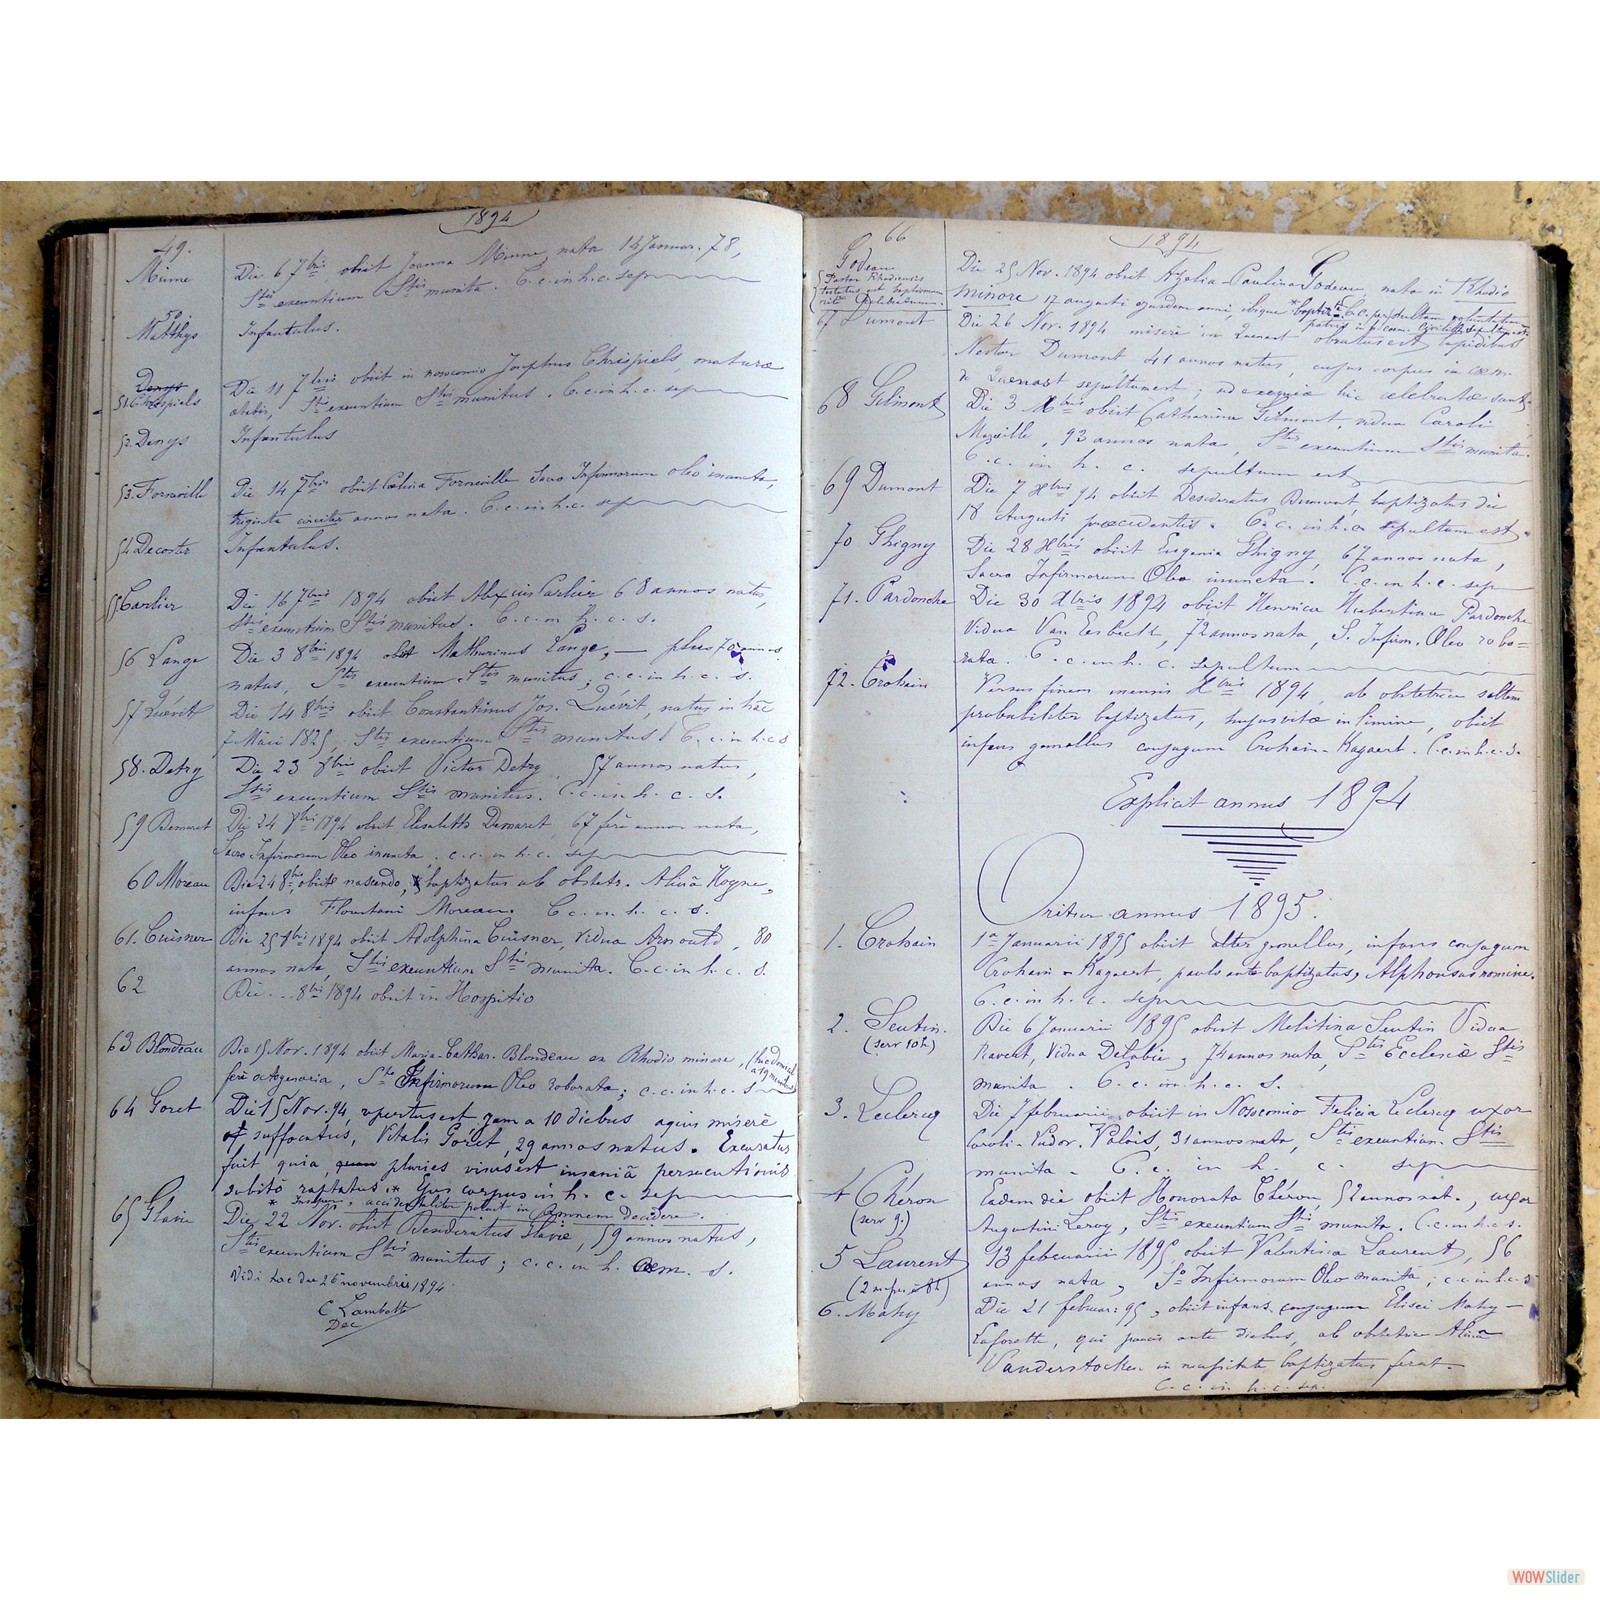 1894
49.
Minne
Die 6 7bris obiit Joanna Minne, nata 14 Januar. 78,
Stis exeuntium Stis munita. C.c.in h.c. sep
50
Matthys
Infantulus.
Denys
51 Chrispiels
Die 11 7bris obiit in nosocomio Josephus Chrispiels, maturæ
ætatis, Stis exeuntium Stis munitus. C.c.in h.c. sep
52. Denys
Infantulus
53. Fornville
Die 14 7bris obiit Cœlina Fornville Sacro Infirmorum oleo inuncta,
triginta circiter annos nata. C.c.in h.c. sep
54 Decoster
Infantulus.
55 Carlier
Die 16 7bris 1894 obiit Alexius Carlier 68 annos natus,
Stis exeuntium Stis munitus. C.c.in h.c.s.
56 Lange
Die 3 8bris 1894 obiit Mathurinus Lange, — plus 70 annos
natus, Stis exeuntium Stis munitus; c.c.in h.c. s.
57 Quévit
Die 14 8bris obiit Constantinus Jos. Quévit, natus in hâc
7 Maii 1825, Stis exeuntium Stis munitus. C.c.in h.c s
58. Detry
Die 23 8bris obiit Victor Detry, 57 annos natus,
Stis exeuntium Stis munitus. C.c.in h.c. s.
59 Demaret
Die 24 8bri 1894 obiit Elisabeth Demaret, 67 ferè annos nata,
Sacro Infirmorum Oleo inuncta. c.c. in h.c. sep
60 Moreau
Die 24 8bris, obiit nascendo, baptizatus ab obstetr. Alinâ Hogne,
infans Floustani Moreau. C.c.in h.c.s.
61. Cuisner
Die 25 8bri 1894 obiit Adolphina Cuisner, Vidua Arnould, 80
annos nata, Stis exeuntium Stis munita. C.c.in h.c. s.
62
Die .. 8bri 1894 obiit in Hospitio
63 Blondeau
Die 15 Nov. 1894 obiit Maria-Cathar. Blondeau ex Rhodio minore,
ferè octogenaria, Sto Infirmorum Oleo roborata; c.c.in h.c. s
64 Goret
Die 15 Nov. 94, repertus est jam a 10 diebus aquis miserè
suffocatus, Vitalis Goret, 29 annos natus. Excusatus
fuit quia, pluries visus est insaniâ persecutionis
subitò raptatus. * Ejus corpus in h. c. sep
* Insuper, accidentaliter potuit in amnem decidere.
65 Flavie
Die 22 Nov. obiit Desideratus Flavie, 59 annos natus,
Stis exeuntium Stis munitus; c.c. in h. cem. s.
Vidi hac die 26 novembris 1894.
C Lambott
Dec
66
1894
Godeau
Pastor Rhodiensis
testatus est baptismum
ritè
Die 25 Nov. 1894 obiit Azalia-Paulina Godeau, nata in Rhodio
minore 17 augusti ejusdem anni, ibique baptiz.
67 Dumont
Die 26 Nov. 1894 miserè in Quenast obrutus est lapidibus
Nestor Dumont 41 annos natus, cujus corpus in cœm.
de Quenast sepultum est; sed exequiæ hic celebratæ sunt
68 Gilmont
Die 3 Xbris obiit Catharina Gilmont, vidua Caroli
Merville, 93 annos nata, Stis exeuntium Stis munita.
C.c. in h. c. sepultum est
69 Dumont
Die 7 Xbris 94 obiit Desideratus Dumont, baptizatus die
18 Augusti præcedentis. C.c.in h.c sepultum est.
70 Ghigny
Die 28 Xbris obiit Eugenia Ghigny, 67 annos nata,
Sacro Infirmorum Oleo inuncta. C.c.in h.c. sep
71. Pardonche
Die 30 Xbris 1894 obiit Henrica Hubertina Pardonche
Vidua Van Eesbeeck, 72 annos nata, S. Infirm. Oleo robo=
rata. C.c. in h.c. sepultum
72. Crohain
Versus finem mensis Xbris 1894, ab obstetrice saltem
probabiliter baptizatus, hujus vitæ in limine, obiit
infans gemellus conjugum Crohain-Kagaert. C.c.in h.c.s.
Explicit annus 1894
Oritur annus 1895.
1. Crohain
1a Januarii 1895 obiit alter gemellus, infans conjugum
Crohain-Kagaert, paulo ante baptizatus, Alphonsus nomine.
C.c.in h.c. sep
2. Seutin.
(serv 10h)
Die 6 Januarii 1895 obiit Melitina Seutin Vidua
Ravent, Vidua Delabie, 74 annos nata, Stis Ecclesiæ Stis
munita. C.c.in.h.c.s.
3. Leclercq
Die 7 februarii obiit in Nosocomio Felicia Leclercq uxor
Caroli-Vudor. Valois, 31 annos nata, Stis exeuntium. Stis
munita. C.c. in h. c. sep
4 Chéron
(serv 9.)
Eadem die obiit Honorata Chéron, 52 annos nat., uxor
Augustini Leroy, Stis exeuntium Stis munita. C.c.in h.c.s.
5 Laurent
13 februarii 1895 obiit Valentina Laurent, 56
annos nata, So Infirmorum Oleo munita; c.c. in h.c.s
6. Mahy
Die 21 februar. 95, obiit infans conjugum Elisei Mahy-
Laforette, qui paucis ante diebus, ab obstetrice Alinâ
Vanderstocken in necessitate baptizatus fuerat.
C.c.in h.c. sep.
WOWSlider